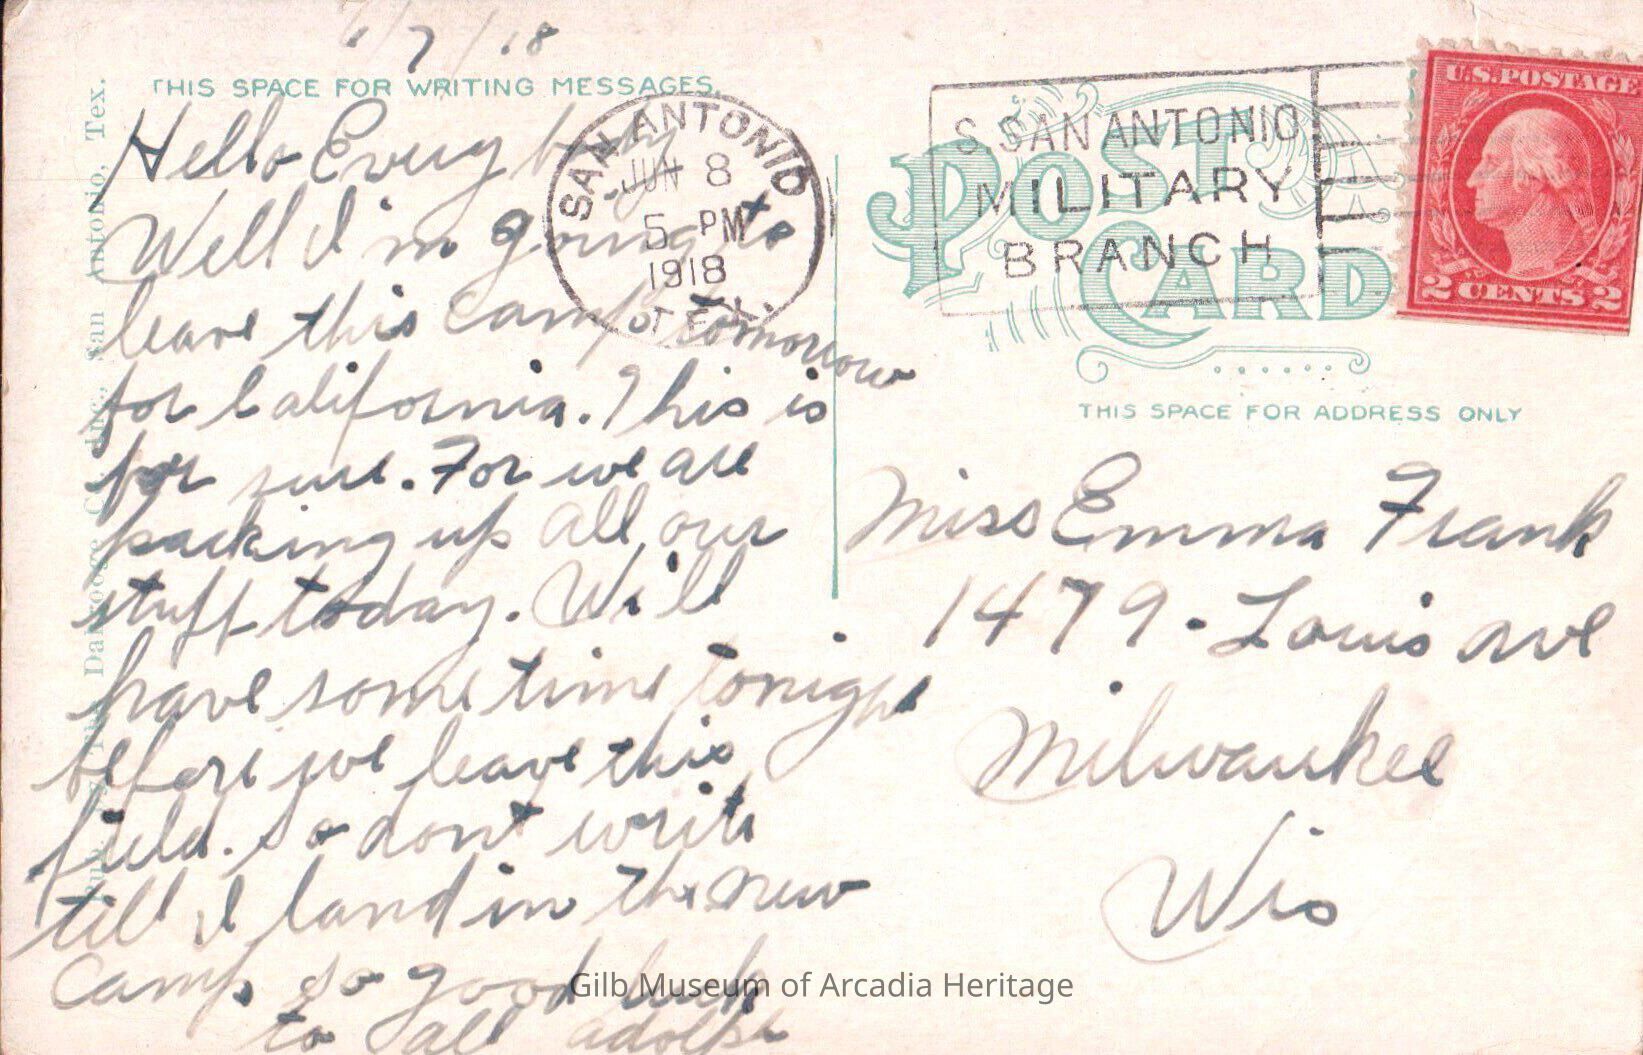 6/7/18
THIS SPACE FOR WRITING MESSAGES.
Hello Everybody
Well I'm going to
leave this camp tomorrow
for California. This is
for sure. For we are
packing up all our
stuff today. Will
have some time tonight
before we leave this
field. So dont write
till I land in the new
Camp so good luck
to all Adolph
SAN ANTONIO
JUN 8
5 PM
1918
TEX.
S. SAN ANTONIO
MILITARY
BRANCH
POST
CARD
U.S. POSTAGE
2 CENTS 2
THIS SPACE FOR ADDRESS ONLY
Miss Emma Frank
1479 - Louis ave
Milwaukee
Wis
San Antonio, Tex.
Gilb Museum of Arcadia Heritage